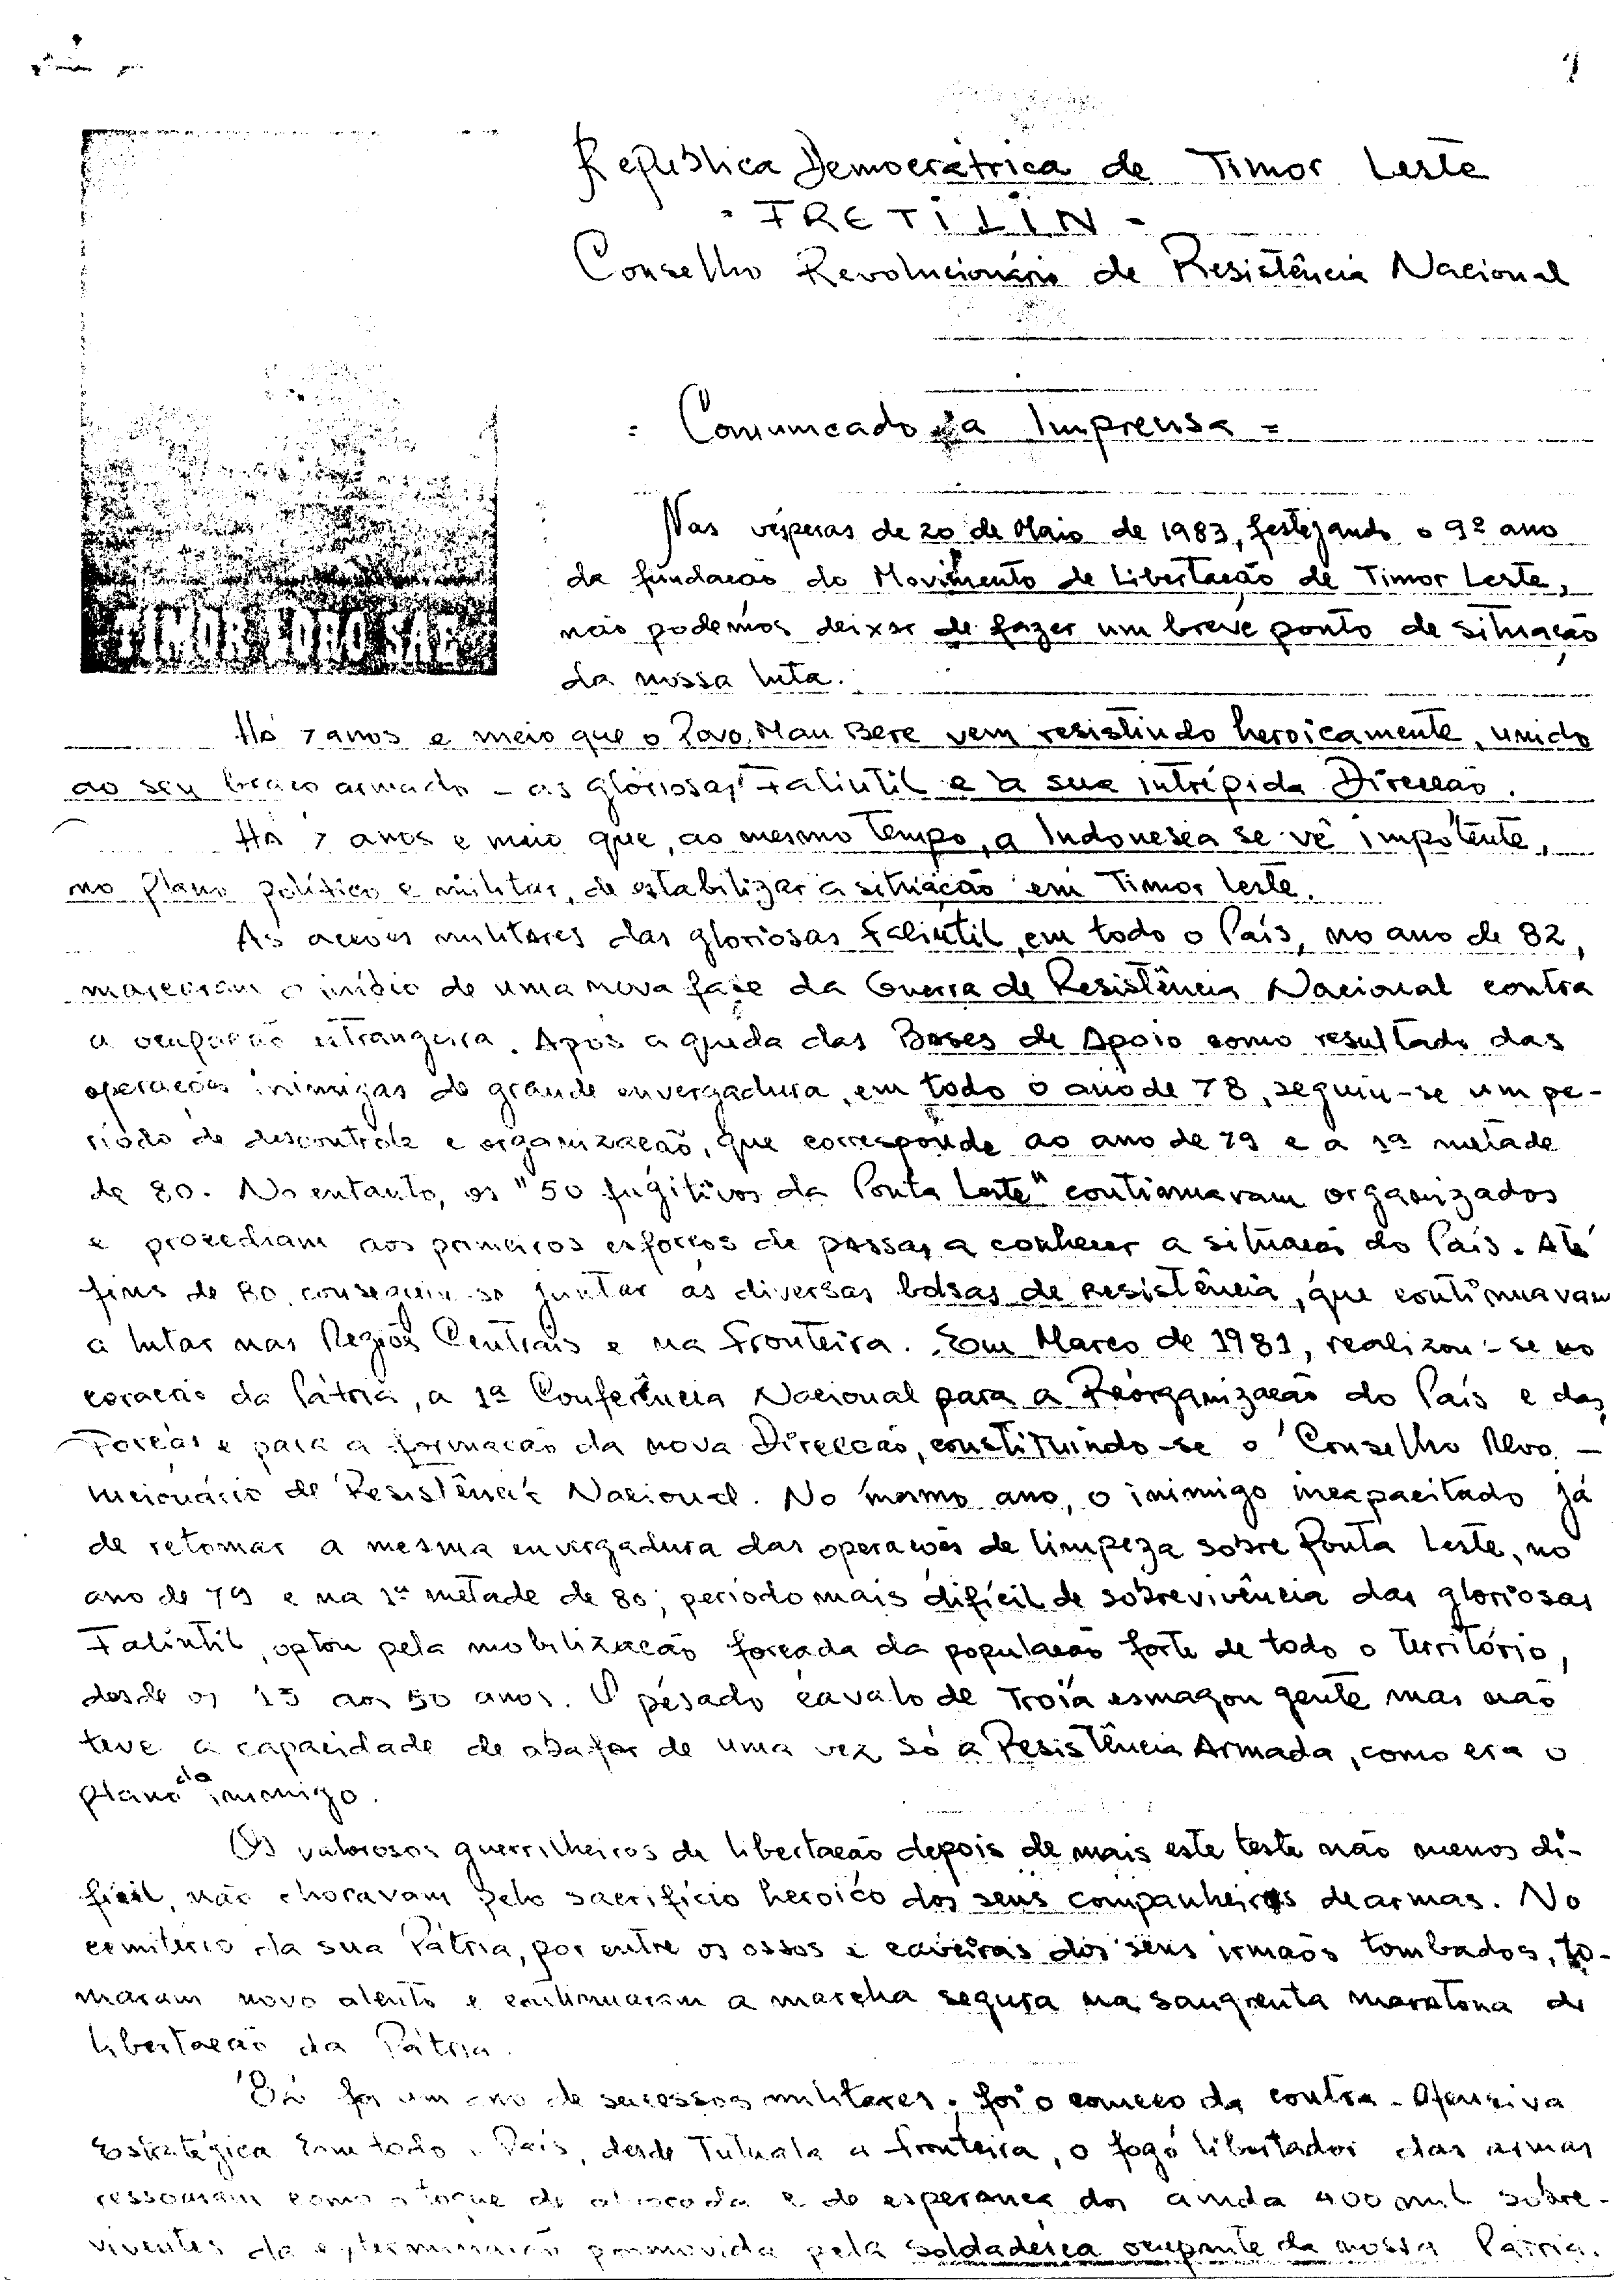 1
República Democrátrica de Timor Leste
- FRETILIN -
Conselho Revolucionário de Resistência Nacional
= Comunicado à Imprensa =
TIMOR LORO SAE
Nas vésperas de 20 de Maio de 1983, festejando o 9º ano
da fundacão do Movimento de Libertacão de Timor Leste,
não podemos deixar de fazer um breve ponto de situacão
da nossa luta.
Há 7 anos e meio que o Povo Mau Bere vem resistindo heroicamente, unido
ao seu braco armado - as gloriosas Falintil e à sua intrépida Direccão.
Há 7 anos e meio que, ao mesmo tempo, a Indonesea se vê impotente,
no plano político e militar, de estabilizar a situacão em Timor Leste.
As accoes militares das gloriosas Falintil, em todo o País, no ano de 82,
marcaram o início de uma nova fase da Guerra de Resistência Nacional contra
a ocupacão estrangeira. Após a queda das Bases de Apoio como resultado das
operacões inimigas de grande envergadura, em todo o ano de 78, seguiu-se um pe-
ríodo de descontrole e organizacão, que corresponde ao ano de 79 e a 1ª metade
de 80. No entanto, os "50 fugitivos da Ponta Leste" continuavam organizados
e procediam aos primeiros esforcos de passar a conhecer a situacão do País. Até
fins de 80, conseguiu-se juntar as diversas bolsas de resistência, que continuavam
a lutar nas Regiões Centrais e na Fronteira. Em Marco de 1981, realizou-se no
coracão da Pátria, a 1ª Conferência Nacional para a Reorganizacão do País e das
Forcas e para a formacão da nova Direccão, constituindo-se o Conselho Revo-
lucionário de Resistência Nacional. No mesmo ano, o inimigo incapacitado já
de retomar a mesma envergadura das operacões de limpeza sobre Ponta Leste, no
ano de 79 e na 1ª metade de 80, período mais difícil de sobrevivência das gloriosas
Falintil, optou pela mobilizacão forcada da populacão forte de todo o Território,
desde os 15 aos 50 anos. O pesado cavalo de Troia esmagou gente mas não
teve a capacidade de abafar de uma vez só a Resistência Armada, como era o
plano do inimigo.
Os valorosos guerrilheiros da libertacão depois de mais este teste não menos di-
fícil, não choravam pelo sacrifício heroico dos seus companheiros de armas. No
cemitério da sua Pátria, por entre os ossos e caveiras dos seus irmãos tombados, to-
maram novo alento e continuaram a marcha segura na sangrenta maratona de
libertacão da Pátria.
82 foi um ano de sucessos militares. Foi o comeco da contra-ofensiva
Estratégica. Em todo o País, desde Tutuala a Fronteira, o fogo libertador das armas
ressoaram como o toque de alvorada e de esperanca dos ainda 400 mil sobre-
viventes da exterminacão promovida pela soldadesca ocupante da nossa Pátria.